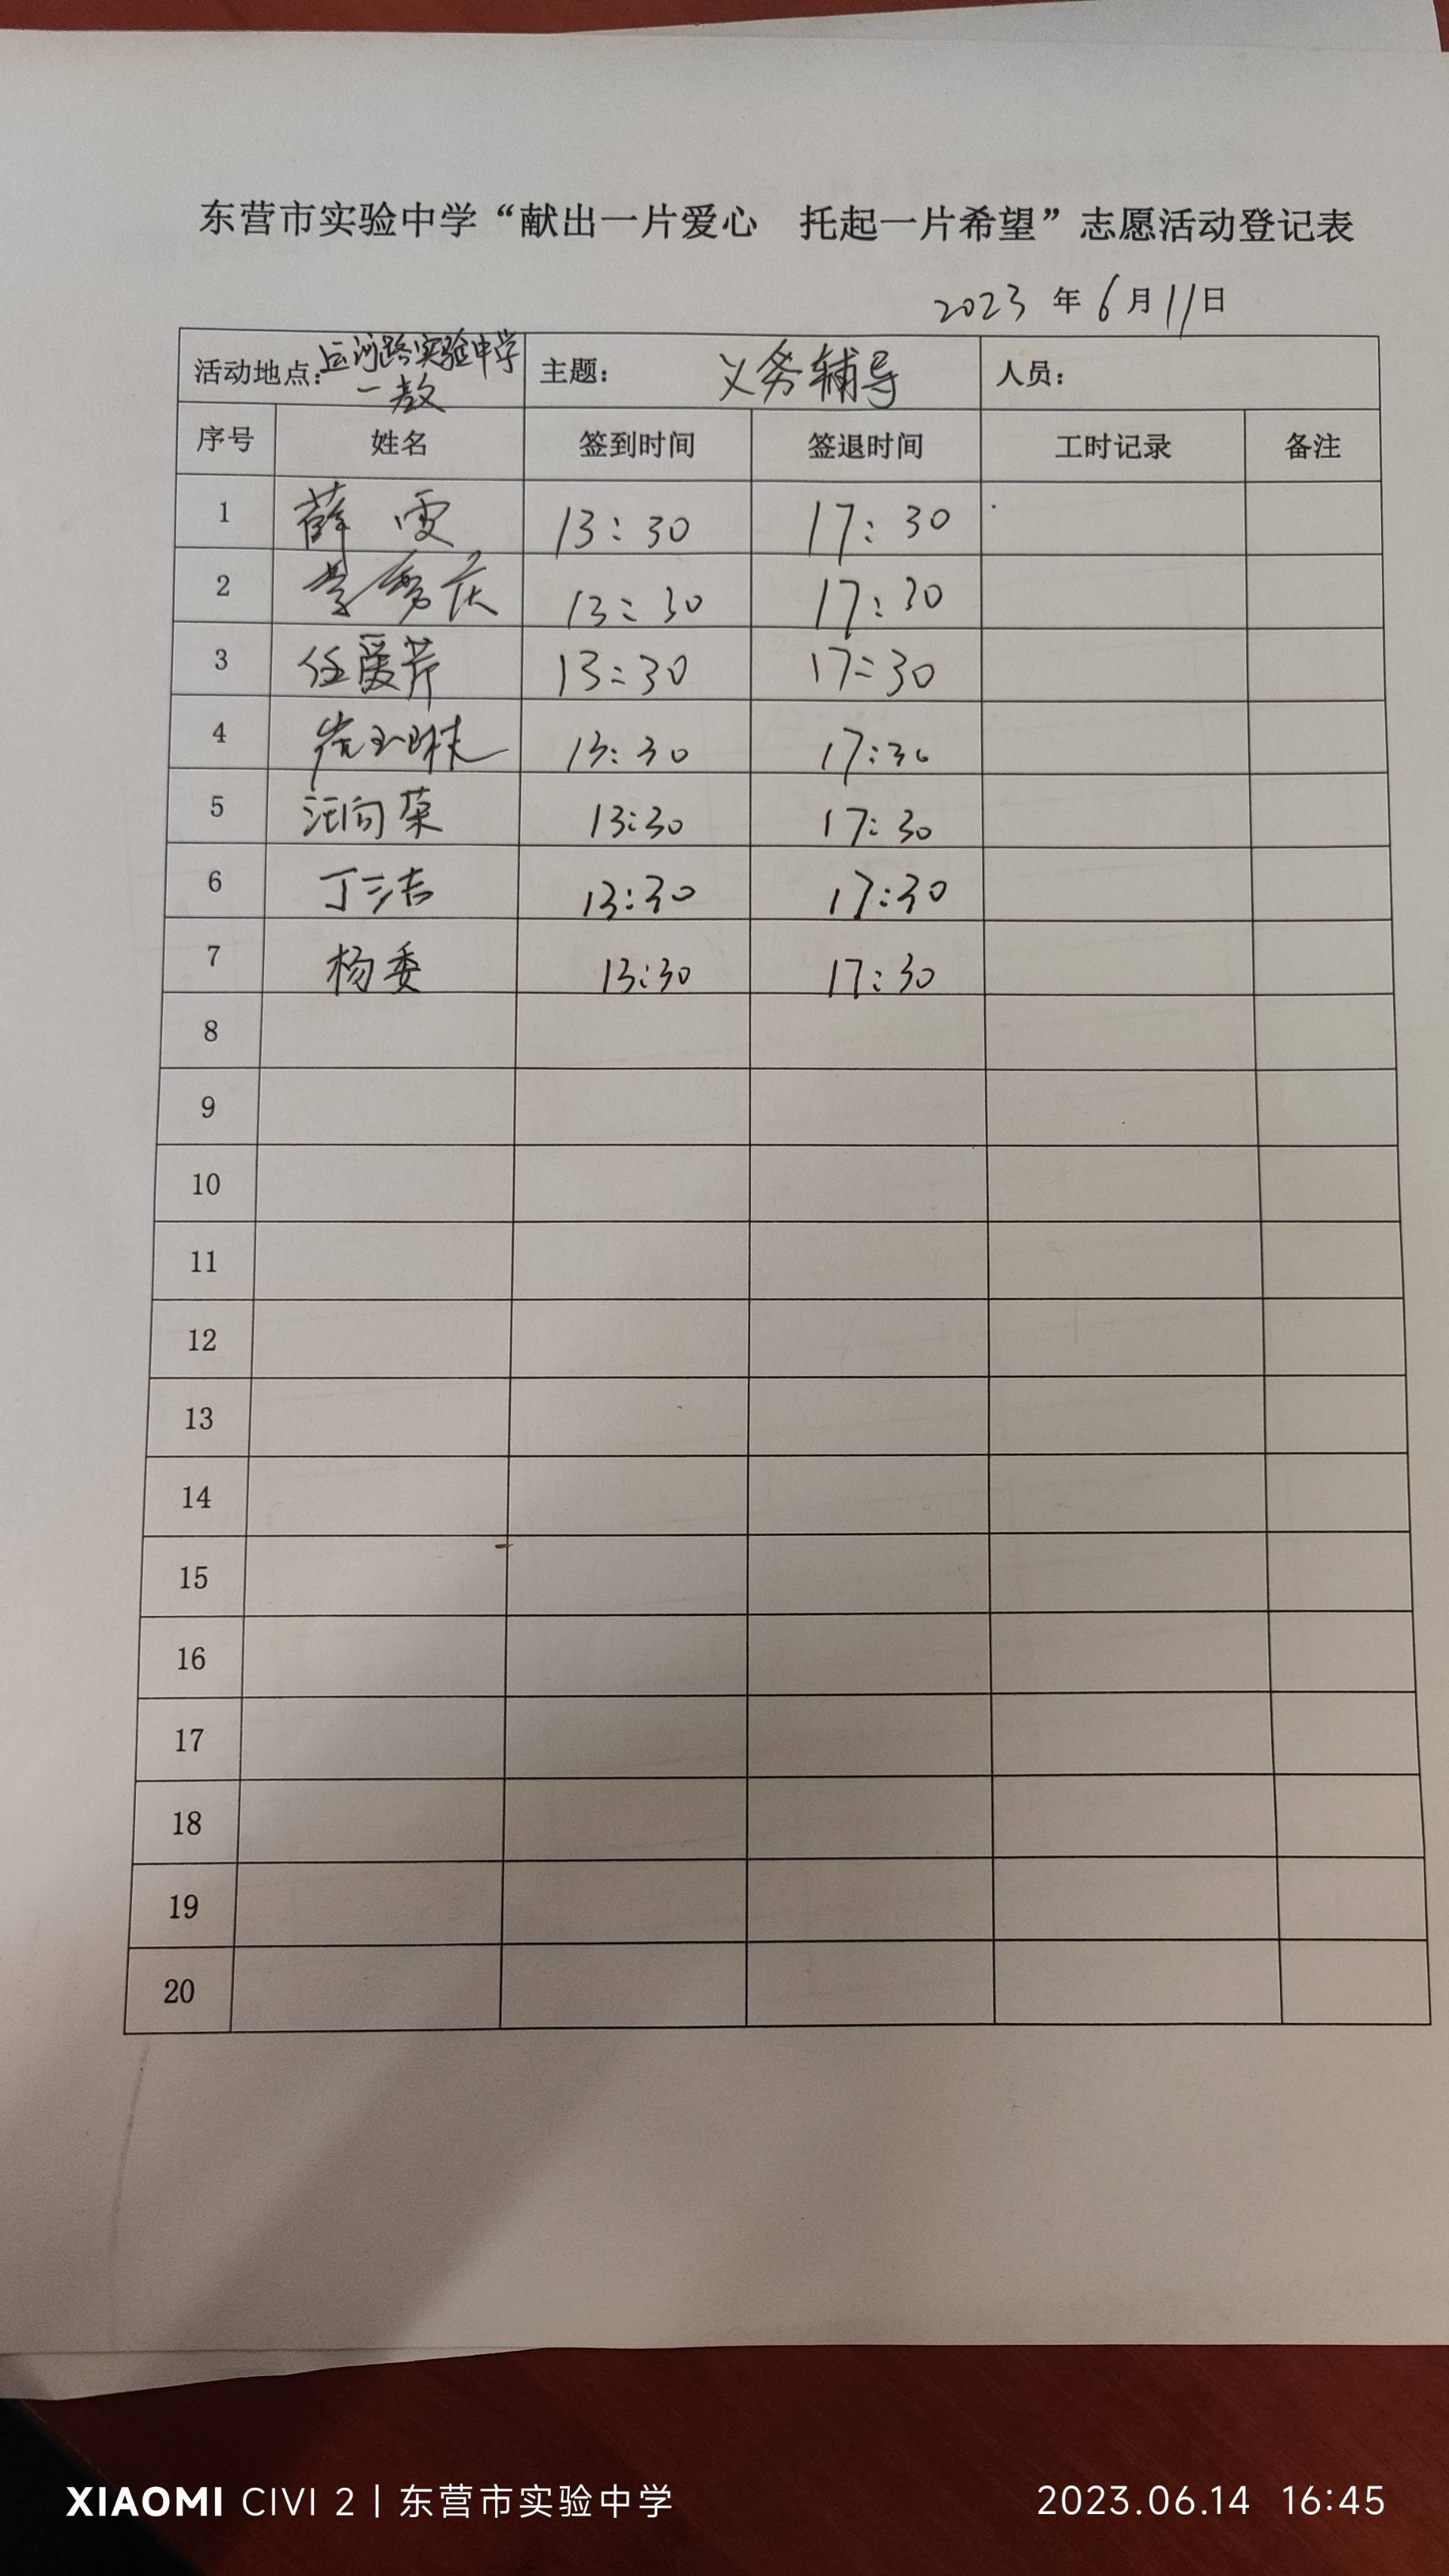 东营市实验中学“献出一片爱心 托起一片希望”志愿活动登记表
2023 年 6 月 11 日
活动地点：运河路实验中学一教 主题： 义务辅导 人员：
序号 姓名 签到时间 签退时间 工时记录 备注
1 薛雯 13:30 17:30
2 13:30 17:30
3 任爱芹 13:30 17:30
4 崔 13:30 17:30
5 汪向荣 13:30 17:30
6 丁三吉 13:30 17:30
7 杨委 13:30 17:30
8
9
10
11
12
13
14
15
16
17
18
19
20
XIAOMI CIVI 2 | 东营市实验中学 2023.06.14 16:45